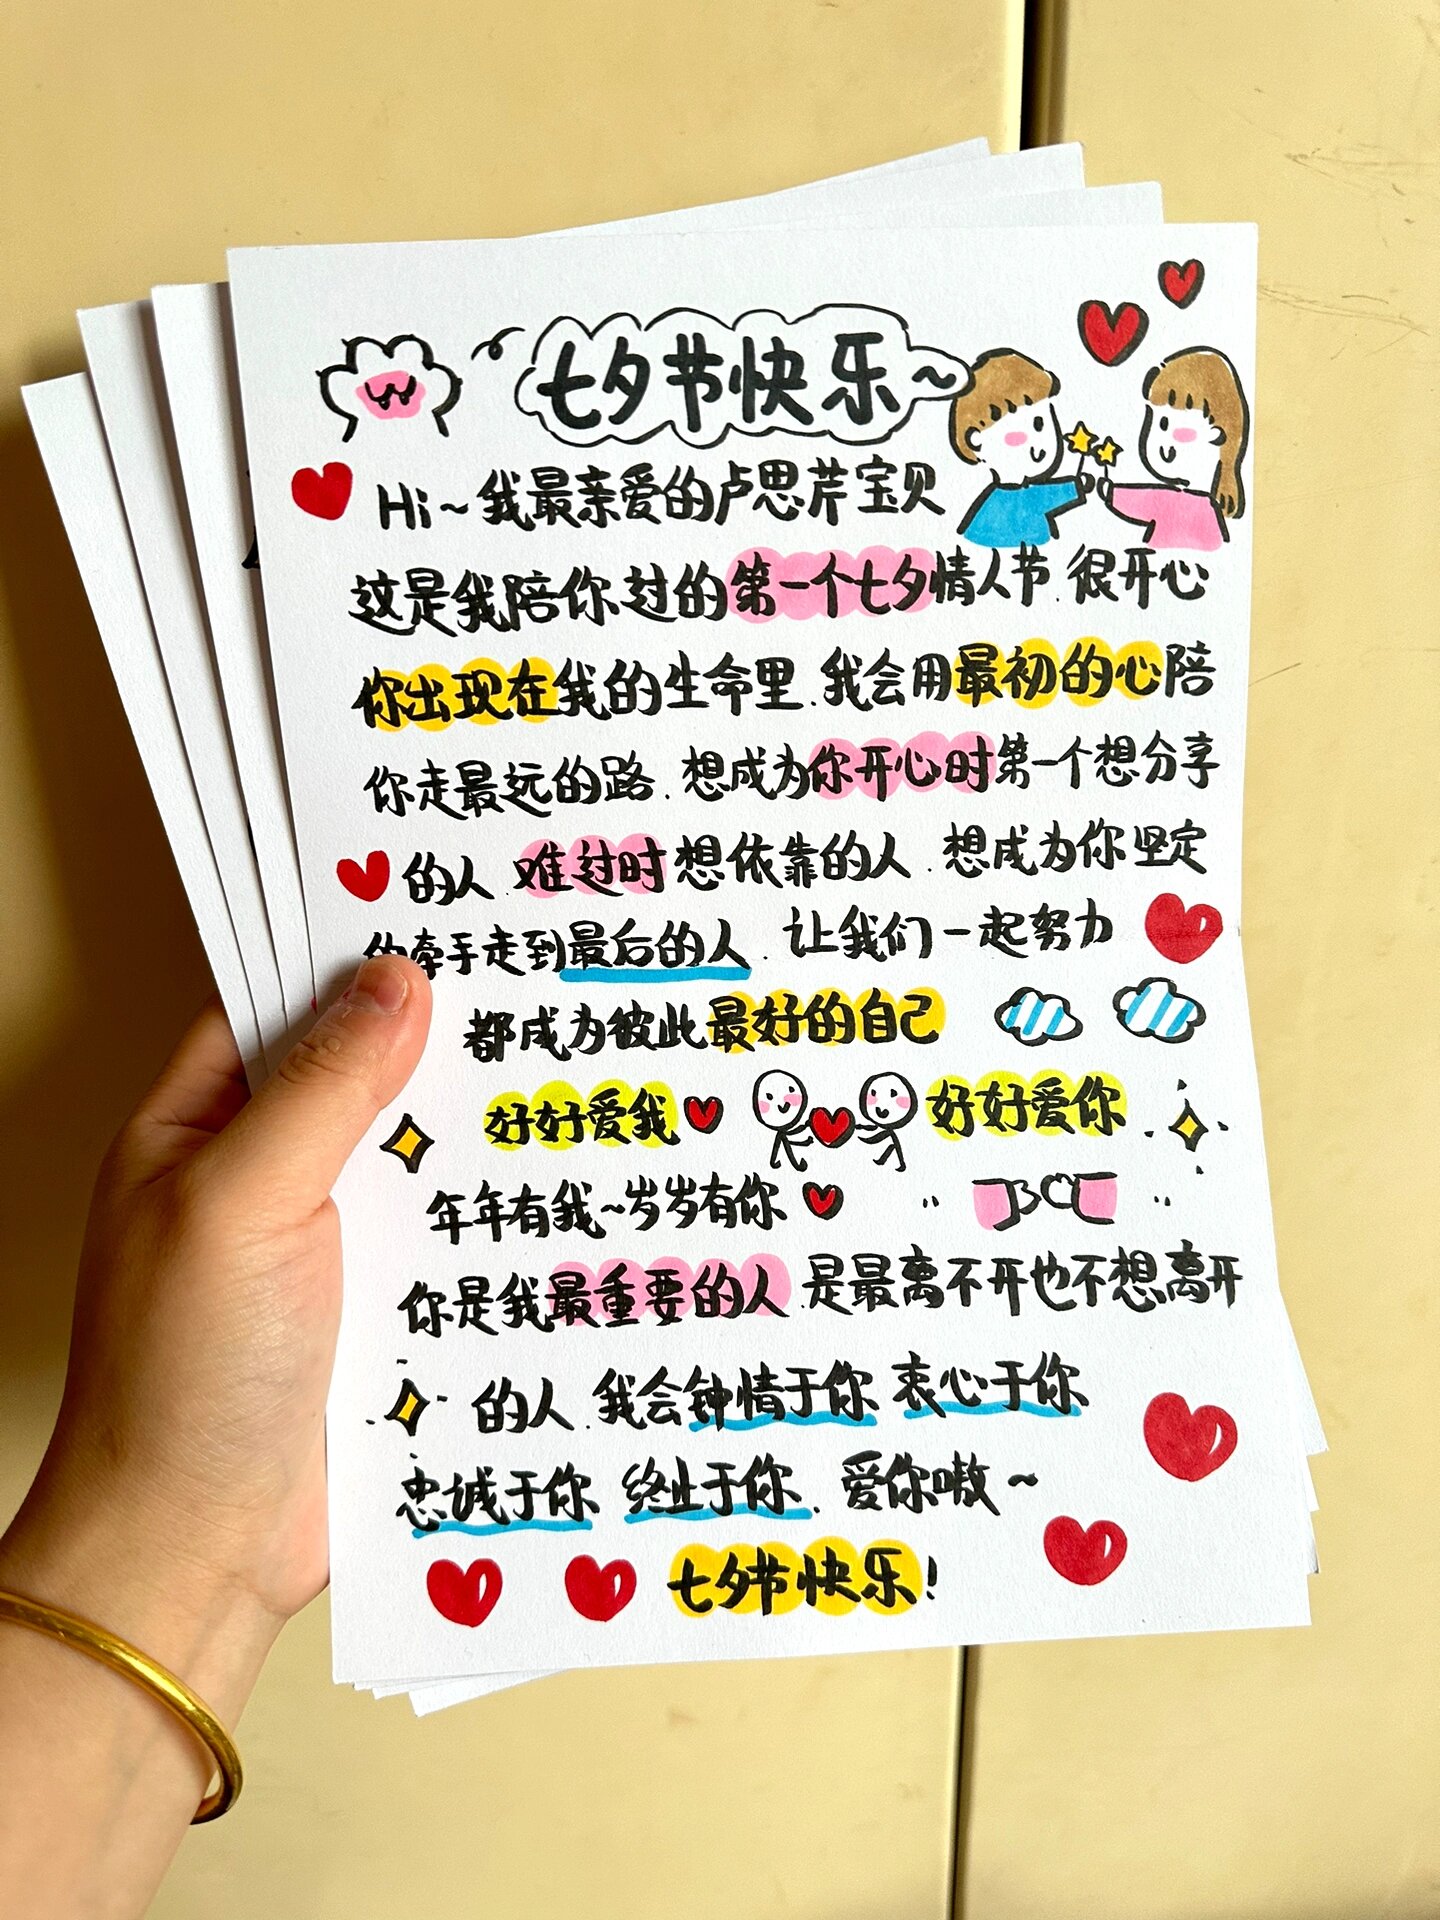 七夕节快乐~
Hi~我最亲爱的卢思芹宝贝
这是我陪你过的第一个七夕情人节.很开心
你出现在我的生命里.我会用最初的心陪
你走最远的路.想成为你开心时第一个想分享
的人.难过时想依靠的人.想成为你坚定
牵手走到最后的人.让我们一起努力
都成为彼此最好的自己
好好爱我 好好爱你
年年有我~岁岁有你
你是我最重要的人.是最离不开也不想离开
的人.我会钟情于你 衷心于你
忠诚于你 终止于你.爱你嗷~
七夕节快乐!